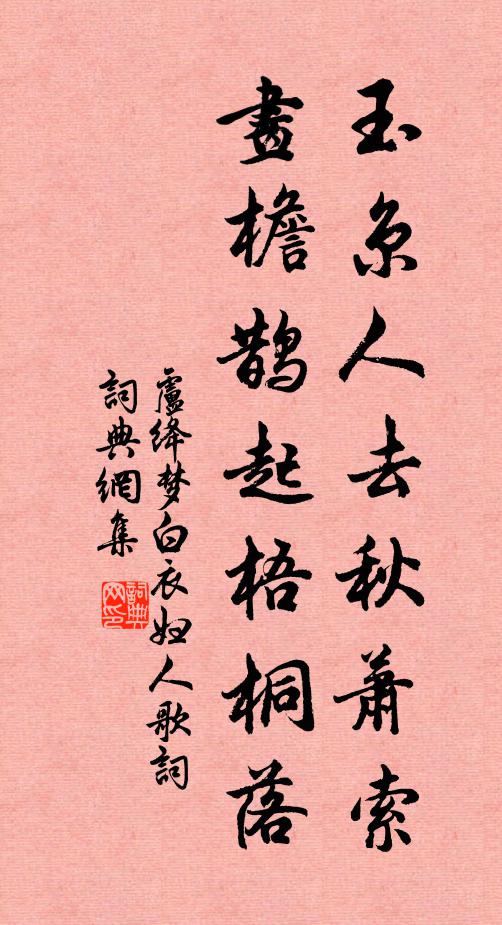 玉京人去秋蕭索
畫檐鵲起梧桐落
盧绛梦白衣妇人歌詞
詞典網集
詞典
网印